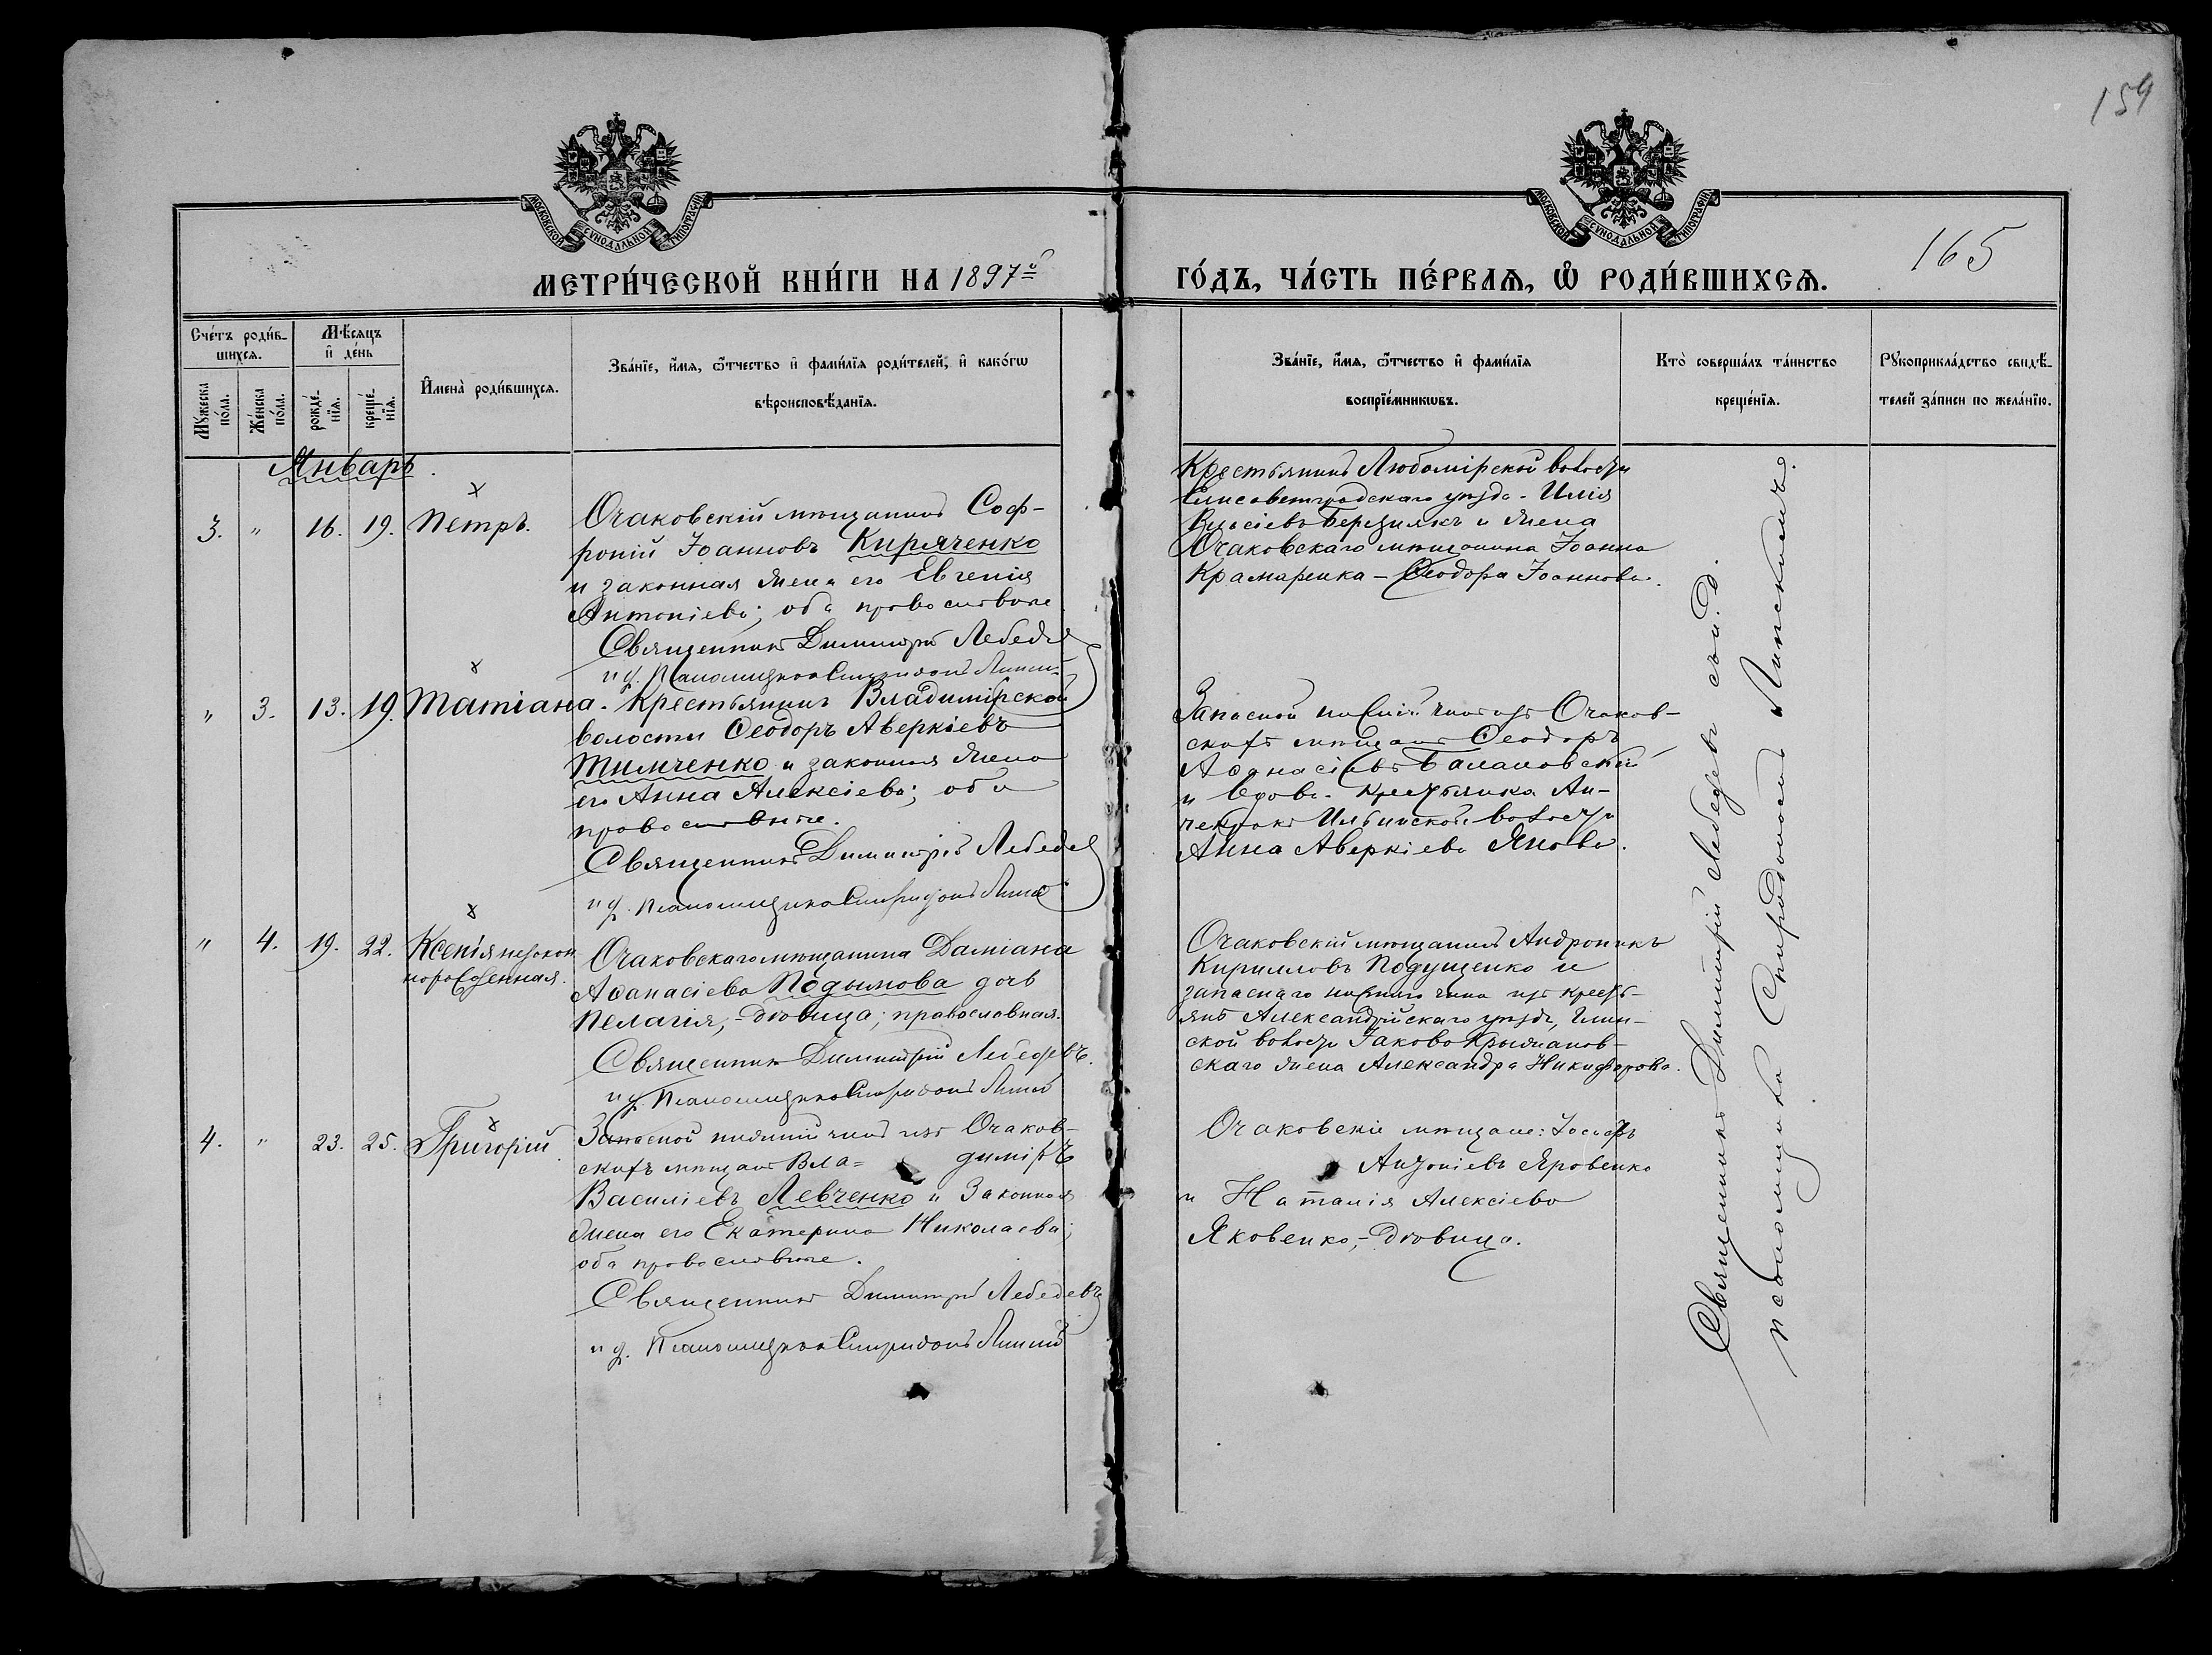 159
МОСКОВСКОЙ СУНОДАЛЬНОЙ ТИПОГРАФІИ
МОСКОВСКОЙ СУНОДАЛЬНОЙ ТИПОГРАФІИ
165
МЕТРИ́ЧЕСКОЙ КНИ́ГИ НА 1897й
ГО́ДЪ, ЧА́СТЬ ПЕ́РВАѦ, Ѡ҆ РОДИ́ВШИХСѦ.
Сче́тъ роди́в-
шихсѧ.
Мꙋ́жеска по́ла.
Же́нска по́ла.
Мѣ́сѧцъ
и҆ де́нь
рожде́-
нїѧ.
креще́-
нїѧ.
И҆мена̀ роди́вшихсѧ.
Зва́нїе, и҆́мѧ, ѻ҆́тчество и҆ фами́лїѧ роди́телей, и҆ како́гѡ
вѣроисповѣ́данїѧ.
Зва́нїе, и҆́мѧ, ѻ҆́тчество и҆ фами́лїѧ
воспрїе́мникѡвъ.
Кто̀ соверша́лъ та́инство
креще́нїѧ.
Рꙋкоприкла́дство свидѣ́-
телей за́писи по жела́нїю.
Январь.
3. " 16. 19. Петръ.
Очаковскій мѣщанинъ Соф-
роній Іоанновъ Киряченко
и законная жена его Евгенія
Антоніева; оба православные
Священникъ Димитрій Лебедев
и д. Псаломщика Спиридонъ
Крестьянинъ Любомірской волости
Елисаветградскаго уѣзда Илія
Власіевъ Березнякъ и жена
Очаковскаго мѣщанина Іоанна
Крамаренка - Ѳеодора Іоаннова.
" 3. 13. 19. Татіана.
Крестьянинъ Владимірской
волости Ѳеодоръ Аверкіевъ
Тимченко и законная жена
его Анна Алексіева; оба
православные.
Священникъ Димитрій Лебедев
и д. Псаломщика Спиридонъ
Запасной нижній чинъ изъ Очаков-
скихъ мѣщанъ Ѳеодоръ
Аѳанасіевъ Балановскій
и вдова крестьянка Ан-
Ильинской волости
Анна Аверкіева Янова.
" 4. 19. 22. Ксенія незакон
норожденная.
Очаковскаго мѣщанина Даміана
Аѳанасіева Подымова дочь
Пелагія, - дѣвица; православная.
Священникъ Димитрій Лебедевъ.
и д. Псаломщика Спиридонъ
Очаковскій мѣщанинъ Андроникъ
Кирилловъ Подущенко и
запаснаго нижняго чина изъ кресть-
янъ Александрійскаго уѣзда,
ской волости Іакова Крыжанов-
скаго жена Александра Никифорова.
4. " 23. 25. Григорій.
Запасной нижній чинъ изъ Очаков-
скихъ мѣщанъ Вла= диміръ
Василіевъ Левченко и законная
жена его Екатерина Николаева;
оба православные.
Священникъ Димитрій Лебедевъ
и д. Псаломщика Спиридонъ
Очаковскіе мѣщане: Іосифъ
Антоніевъ Яровенко
и Наталія Алексіева
Яковенко, - дѣвица.
Священникъ Димитрій Лебедевъ
псаломщика Спиридономъ Липскимъ.